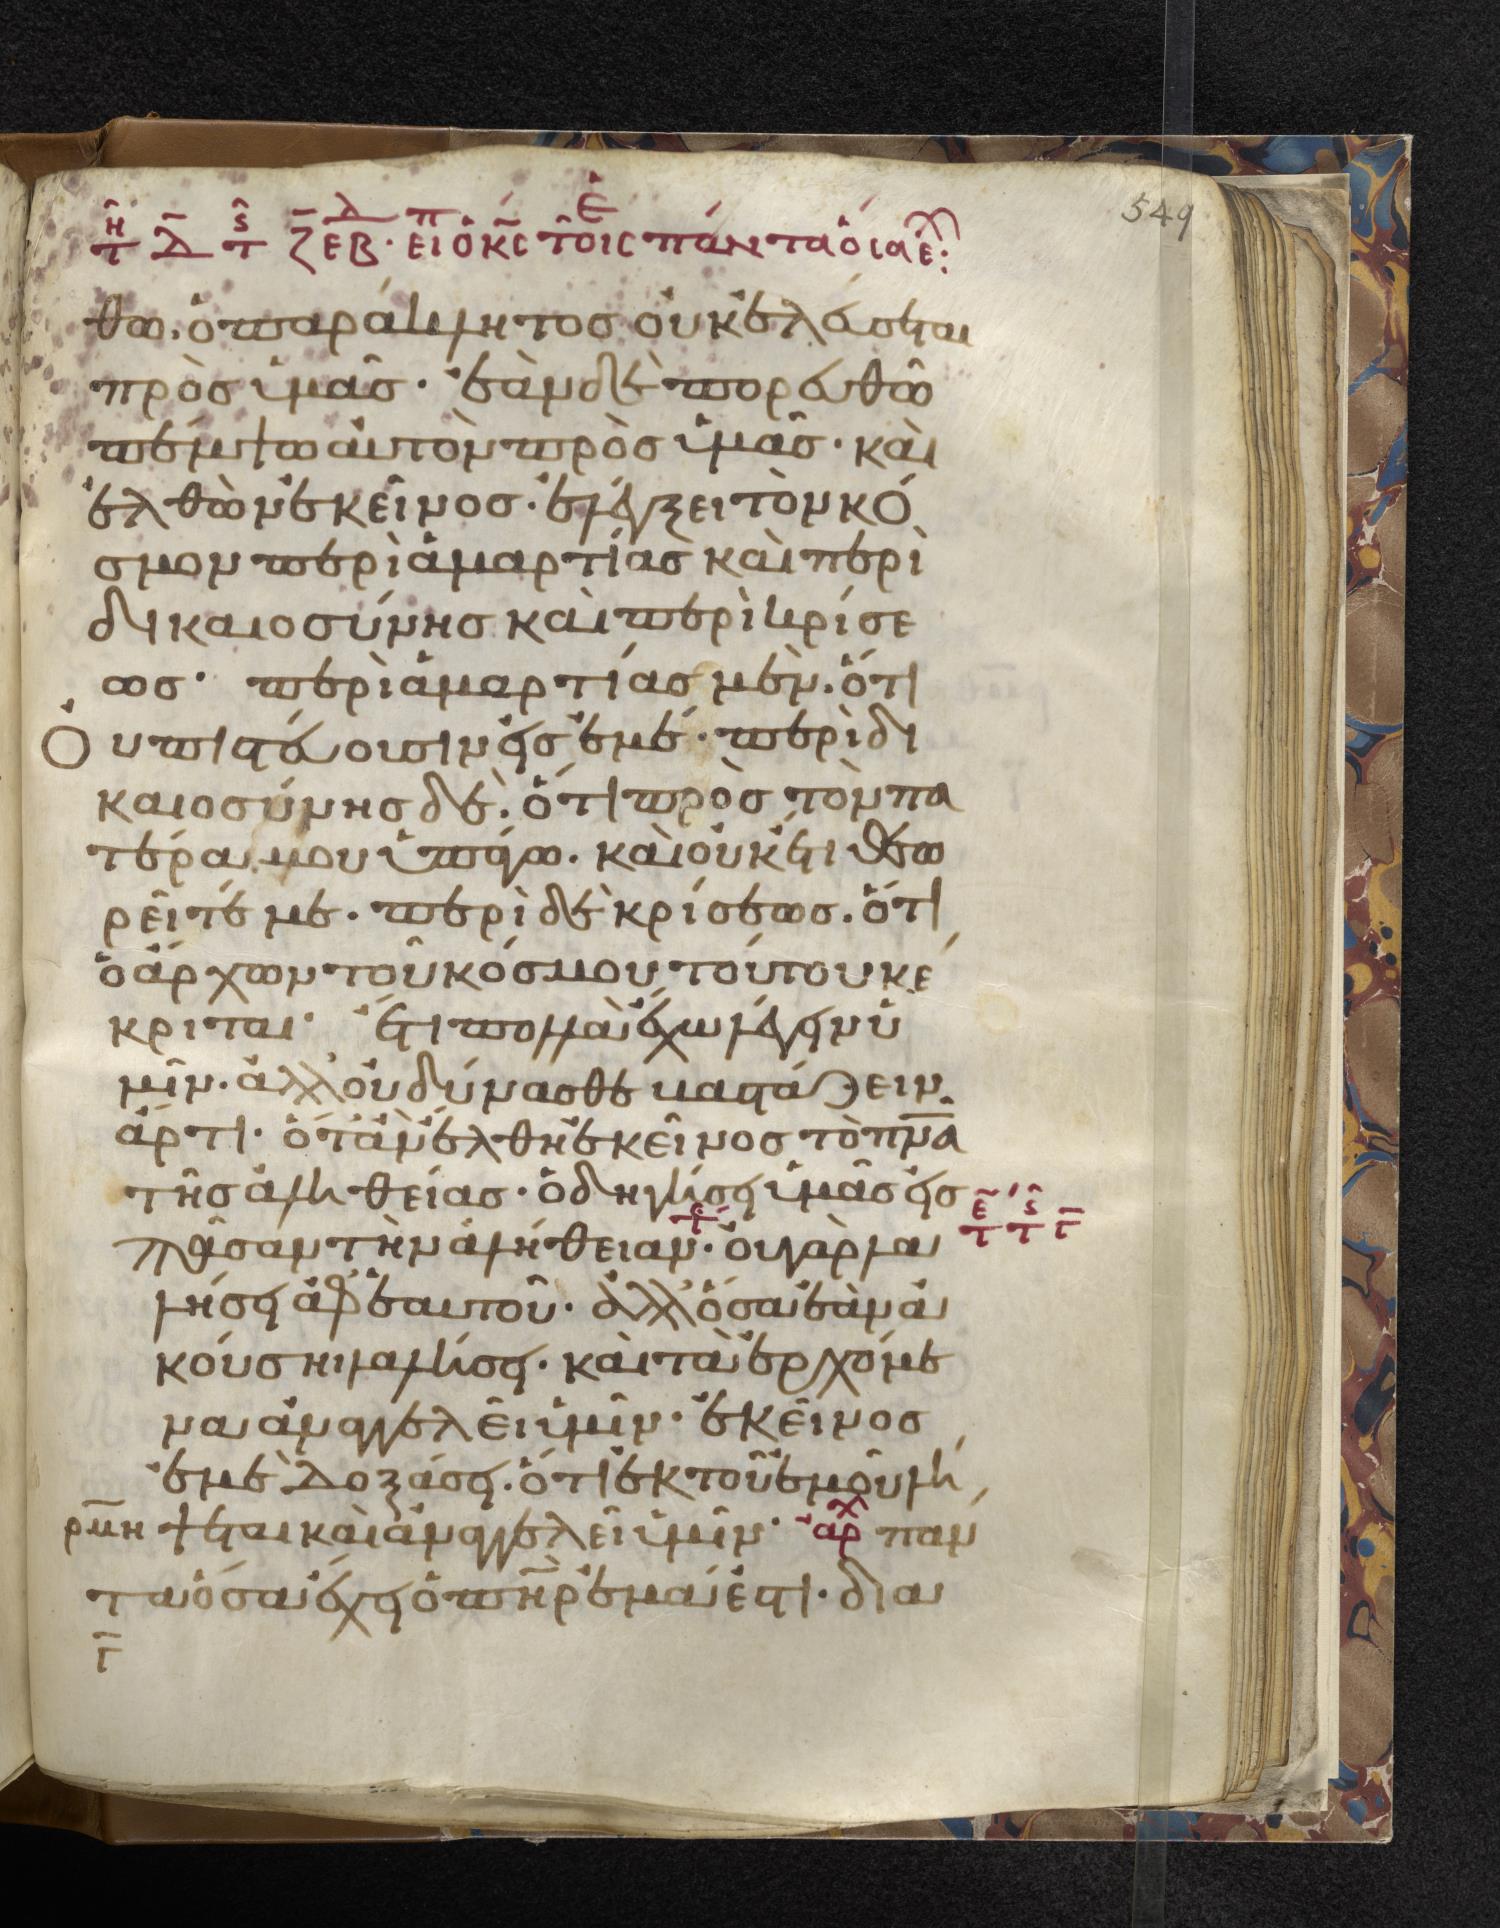 549
εἶ ὁ κ̅ς̅ τοῖς πάντα ὅσα ἔχει:
θω. ὁ παράκλητος οὐκ ἐλεύσεται
πρὸς ὑμᾶς· ἐὰν δὲ πορευθῶ
πέμψω αὐτὸν πρὸς ὑμᾶς· καὶ
ἐλθὼν ἐκεῖνος· ἐλέγξει τὸν κό
σμον περὶ ἁμαρτίας καὶ περὶ
δικαιοσύνης καὶ περὶ κρίσε
ως· περὶ ἁμαρτίας μὲν. ὅτι
Ὀυ πιστεύουσιν εἰς ἐμέ· περὶ δι
καιοσύνης δὲ. ὅτι πρὸς τὸν πα
τέρα μου ὑπάγω. καὶ οὐκ έτι θεω
ρεῖτέ με. περὶ δὲ κρίσεως. ὅτι
ὁ ἄρχων τοῦ κόσμου τούτου κέ
κριται· ἔτι πολλὰ ἔχω λέγειν ὑ
μῖν. ἀλλ' οὐ δύνασθε βαστάζειν
ἄρτι· ὅταν ἔλθη ἐκεῖνος τὸ π̅ν̅α̅
τῆς ἀληθείας· ὁδηγήσει ὑμᾶς εἰς
πᾶσαν τὴν ἀλήθειαν· οὐ γὰρ λα
λήσει ἀφ' ἑαυτοῦ· ἀλλ' ὅσα ἐὰν ἀ
κούση λαλήσει· καὶ τὰ ἐρχόμε
να ἀναγγελεῖ ὑμῖν· ἐκεῖνος
ἐμὲ δοξάσει. ὅτι ἐκ τοῦ ἐμοῦ λή
ρμη ψεται καὶ ἀναγγελεῖ ὑμῖν· ἀρχ πάν
τα ὅσα ἔχει ὁ π̅η̅ρ̅ ἐμά ἐστι· δια
γ̅